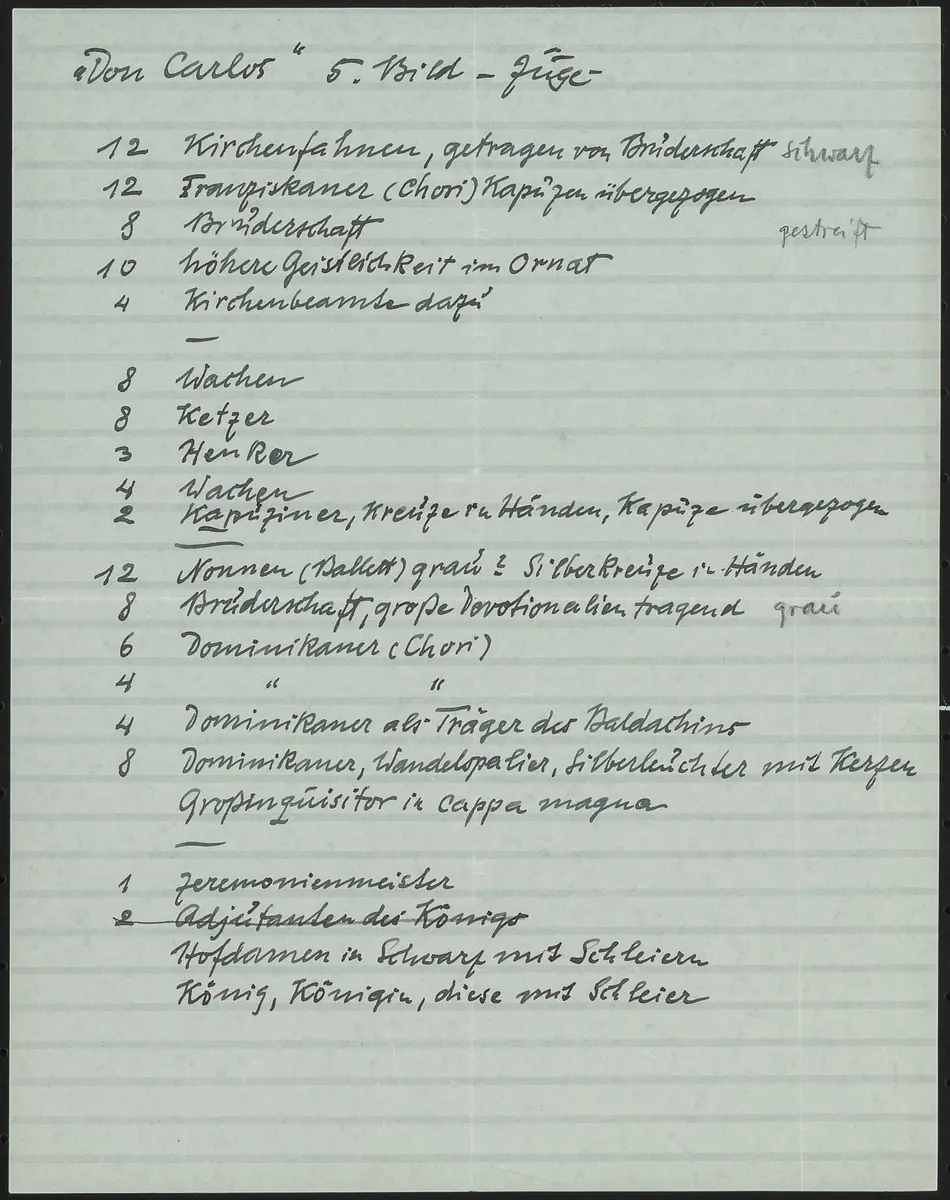 „Don Carlos“ 5. Bild – Züge –
12 Kirchenfahnen, getragen von Brüderschaft schwarz
12 Franziskaner (Chori) Kapuzen übergezogen
8 Brüderschaft gestreift
10 höhere Geistlichkeit im Ornat
4 Kirchenbeamte dazu
—
8 Wachen
8 Ketzer
3 Henker
4 Wachen
2 Kapuziner, Kreuze in Händen, Kapuze übergezogen
—
12 Nonnen (Ballett) grau ? Silberkreuze in Händen
8 Brüderschaft, große Devotionalien tragend grau
6 Dominikaner (Chori)
4 " "
4 Dominikaner als Träger des Baldachins
8 Dominikaner, Wandelspalier, Silberleuchter mit Kerzen
Großinquisitor in cappa magna
—
1 Zeremonienmeister
2 Adjutanten des Königs
Hofdamen in Schwarz mit Schleiern
König, Königin, diese mit Schleier